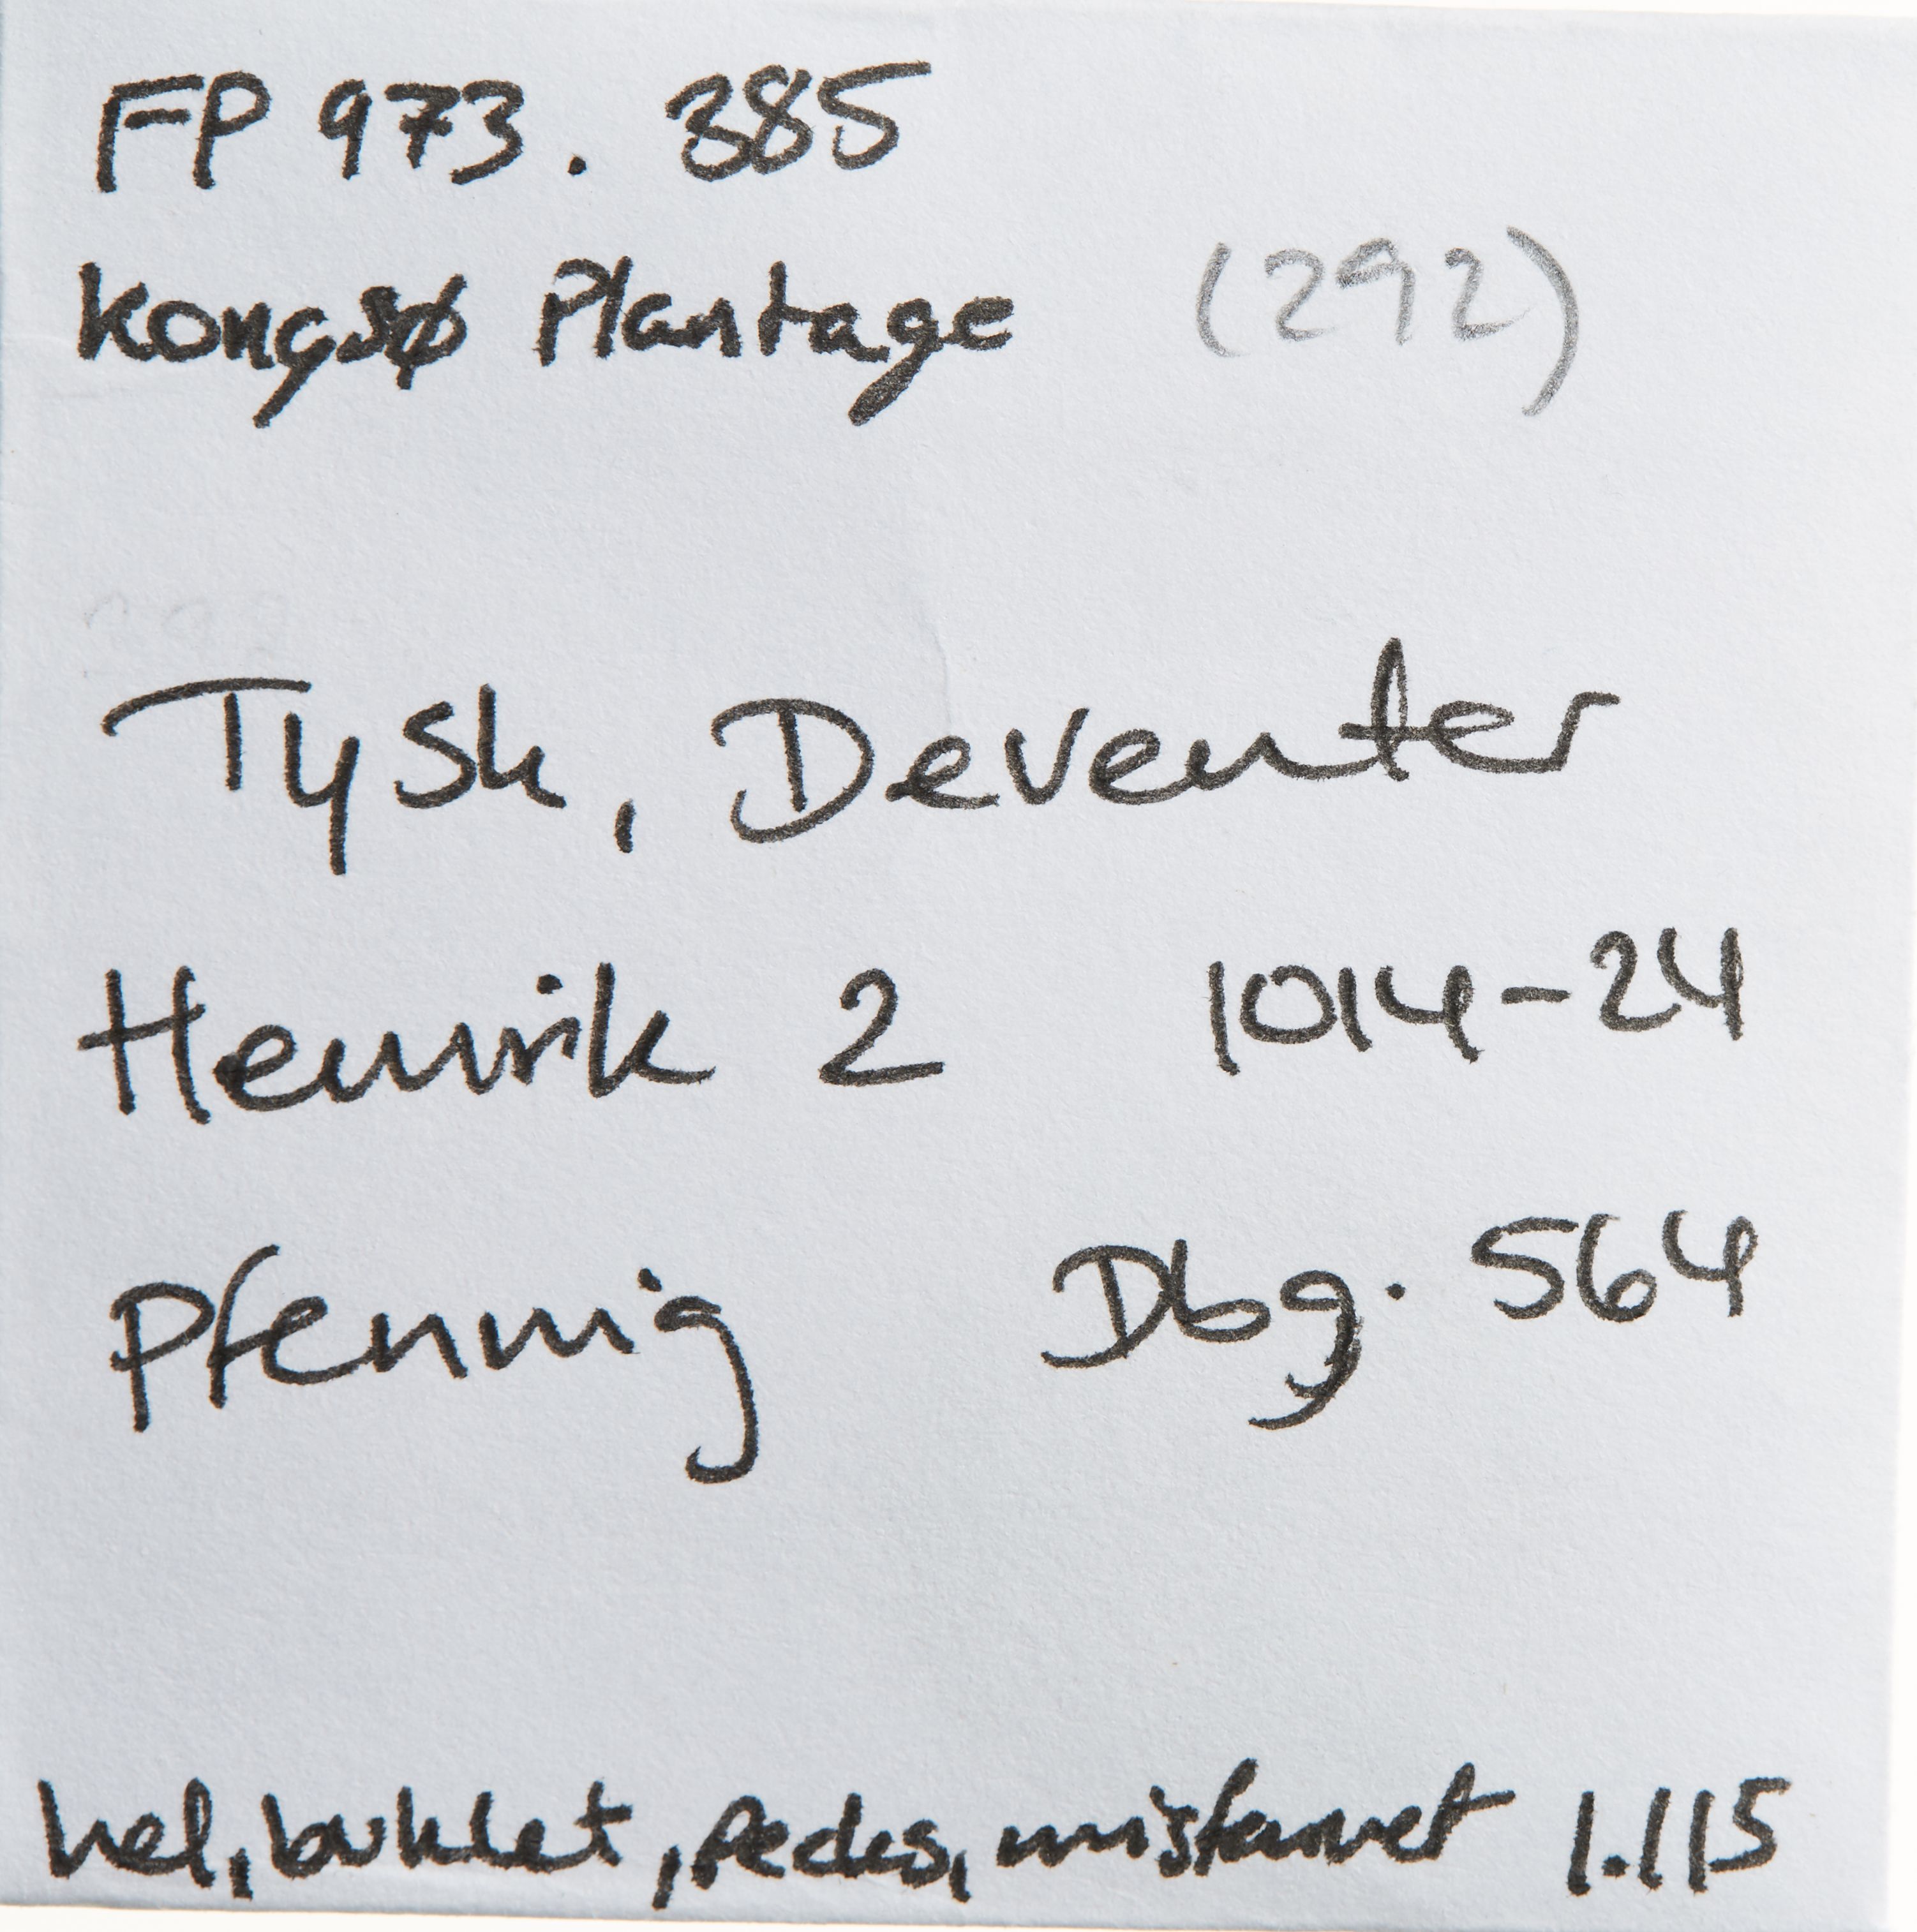 FP 973. 385
Kongsø Plantage (292)
Tysk, Deventer
Henrik 2 1014-24
Pfennig Dbg. 564
hel, buklet, pecks, misfarvet 1.115